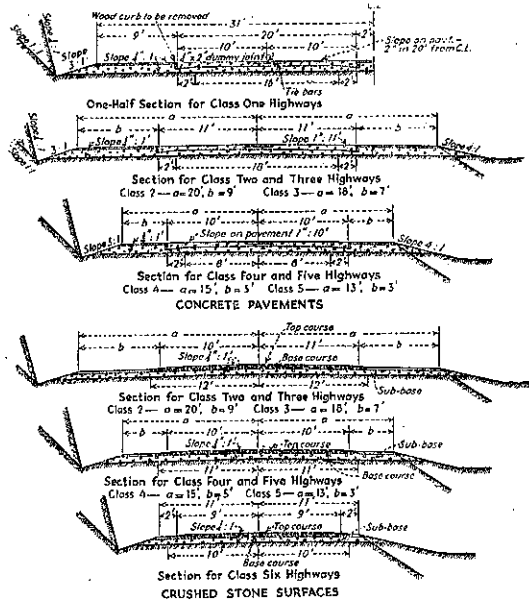 C.L.
Wood curb to be removed
31'
9' 20' 2'
10' 10'
Slope on pav't. =
2" in 20' from C.L.
Slope
3:1
Slope
2" dummy joint
2' 16' 2'
Tie bars
One-Half Section for Class One Highways
a a
b 11' 11' b
Slope 1":1' Slope 4:1
3:1
2' 18' 2'
Section for Class Two and Three Highways
Class 2 — a=20', b=9' Class 3 — a=18', b=7'
a a
b 10' 10' b
Slope on pavement 1":10'
Slope 4:1
2' 8' 8' 2'
Section for Class Four and Five Highways
Class 4 — a=15', b=5' Class 5 — a=13', b=3'
CONCRETE PAVEMENTS
a a
Top course
b 10' 11' b
Slope Base course
12' 12' Sub-base
Section for Class Two and Three Highways
Class 2 — a=20', b=9' Class 3 — a=18', b=7'
a a
b 10' 10' b
Slope Top course Sub-base
11' 11' Base course
Section for Class Four and Five Highways
Class 4 — a=15', b=5' Class 5 — a=13', b=3'
11' 11'
2' 9' 9' 2'
Slope Top course Sub-base
10' 10'
Base course
Section for Class Six Highways
CRUSHED STONE SURFACES